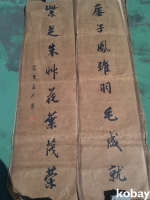 麐子鳳雛羽毛成就
紫芝朱艸花葉茂榮
kobay